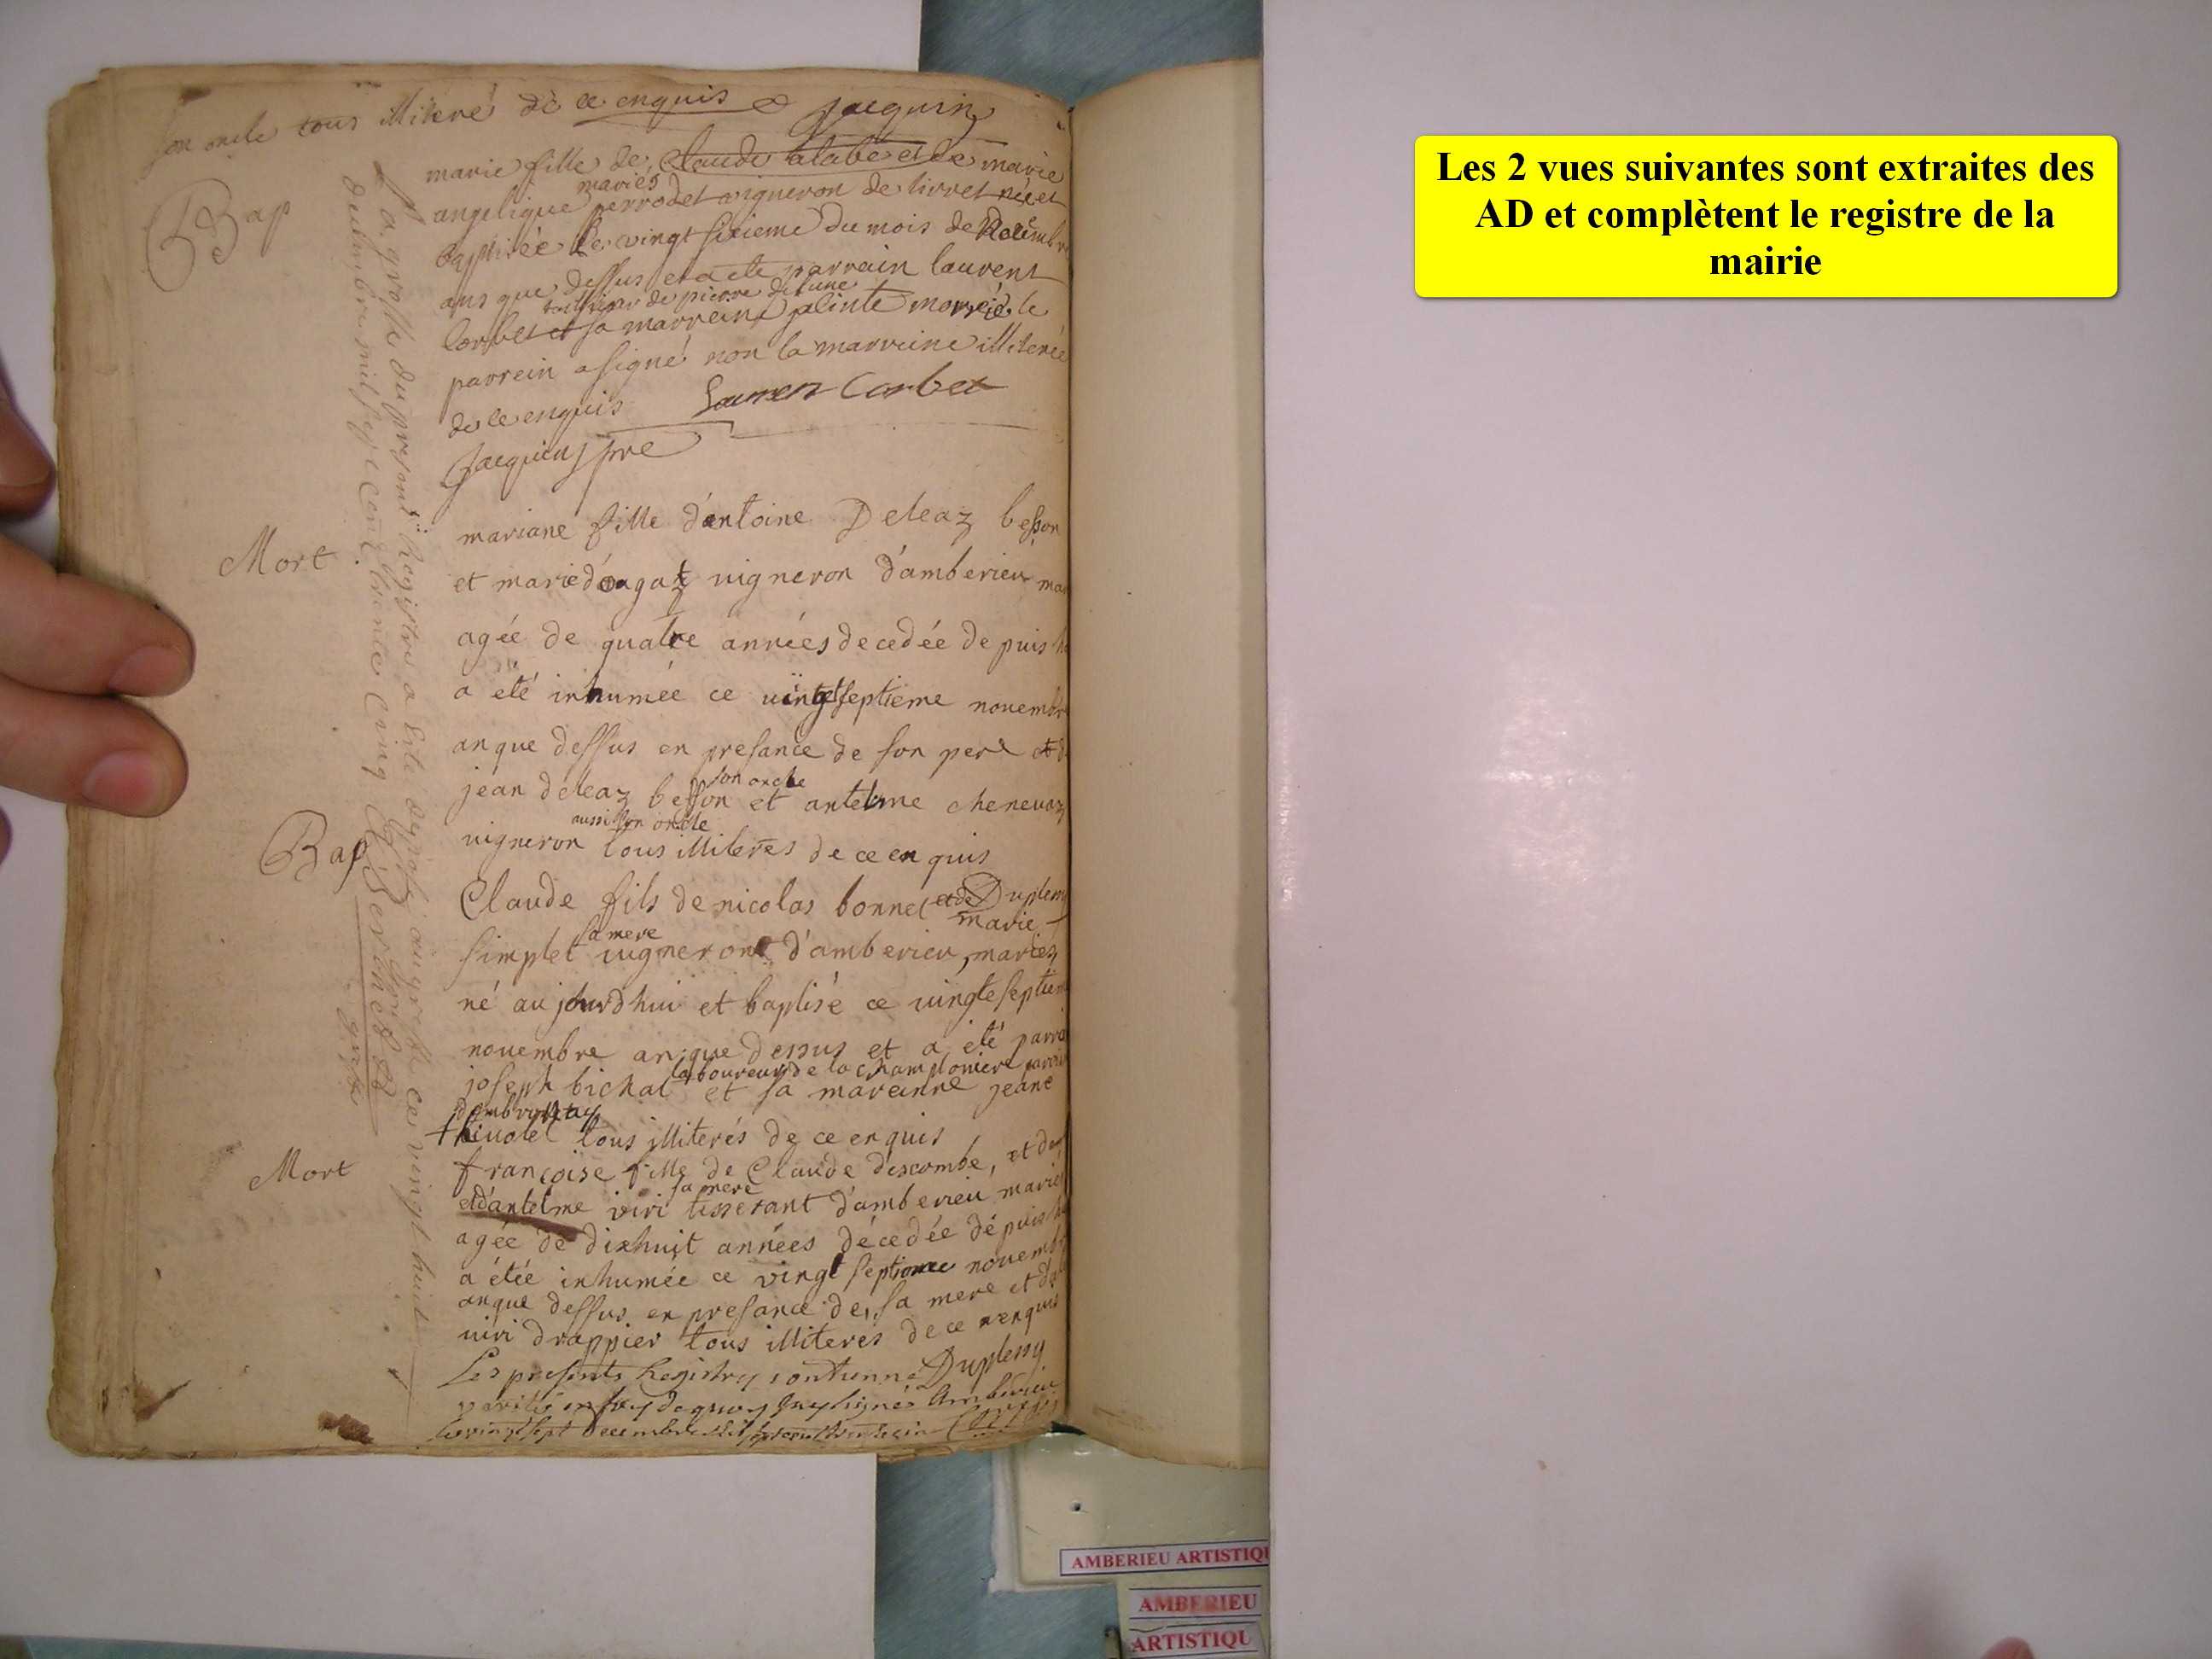 son oncle tous illiteré de ce enquis Jacquin
Bap
marie fille de Claude alabe et de marie
mariés
angelique perrodet vigneron de tirret née et
baptisée le vingt sixieme du mois de Novembre
ans que dessus et a ete parrain laurent
de pierre
Corbet et sa marreine jacinte le
parrein a signé non la marreine illiterée
de ce enquis Lauren Corbet
Jacquin
Mort
mariane fille d'antoine Deleaz besson
et marie vigneron d'amberieu
agée de quatre années decedée depuis
a été inhumée ce vingtseptieme novembre
an que dessus en presance de son pere et
son oncle
jean deleaz besson et antelme chenevaz
aussi son oncle
vigneron tous illiterés de ce en quis
Bap
Claude fils de nicolas bonnet et de Duplessy
marie
sa mere
simplet vigneron d'amberieu, mariez
né aujourdhui et baptisé ce vingteseptiem
novembre an que dessus et a été parra
laboureur de la championiere
joseph bichat et sa mareinne jeane
dombronay
thivolet tous illiterés de ce enquis
Mort
françoise fille de Claude descombe, et
sa mere
et d'antelme viri tisserant d'amberieu mariés
agée de dixhuit années décedée dépuis
a étée inhumée ce vingt septieme novembre
an que dessus en presance de, sa mere et de
viri drappier tous illiteres de ce enquis
Duplessy
Les presents Registres contienne
verité en foy de quoy Jay signé a Amberieu
le vingt sept decembre mil sept cent
La grosse du present Registre a esté au greffe ce vingt huit
decembre mil sept cent trente cinq
Les 2 vues suivantes sont extraites des
AD et complètent le registre de la
mairie
AMBERIEU ARTISTIQU
AMBERIEU
ARTISTIQU